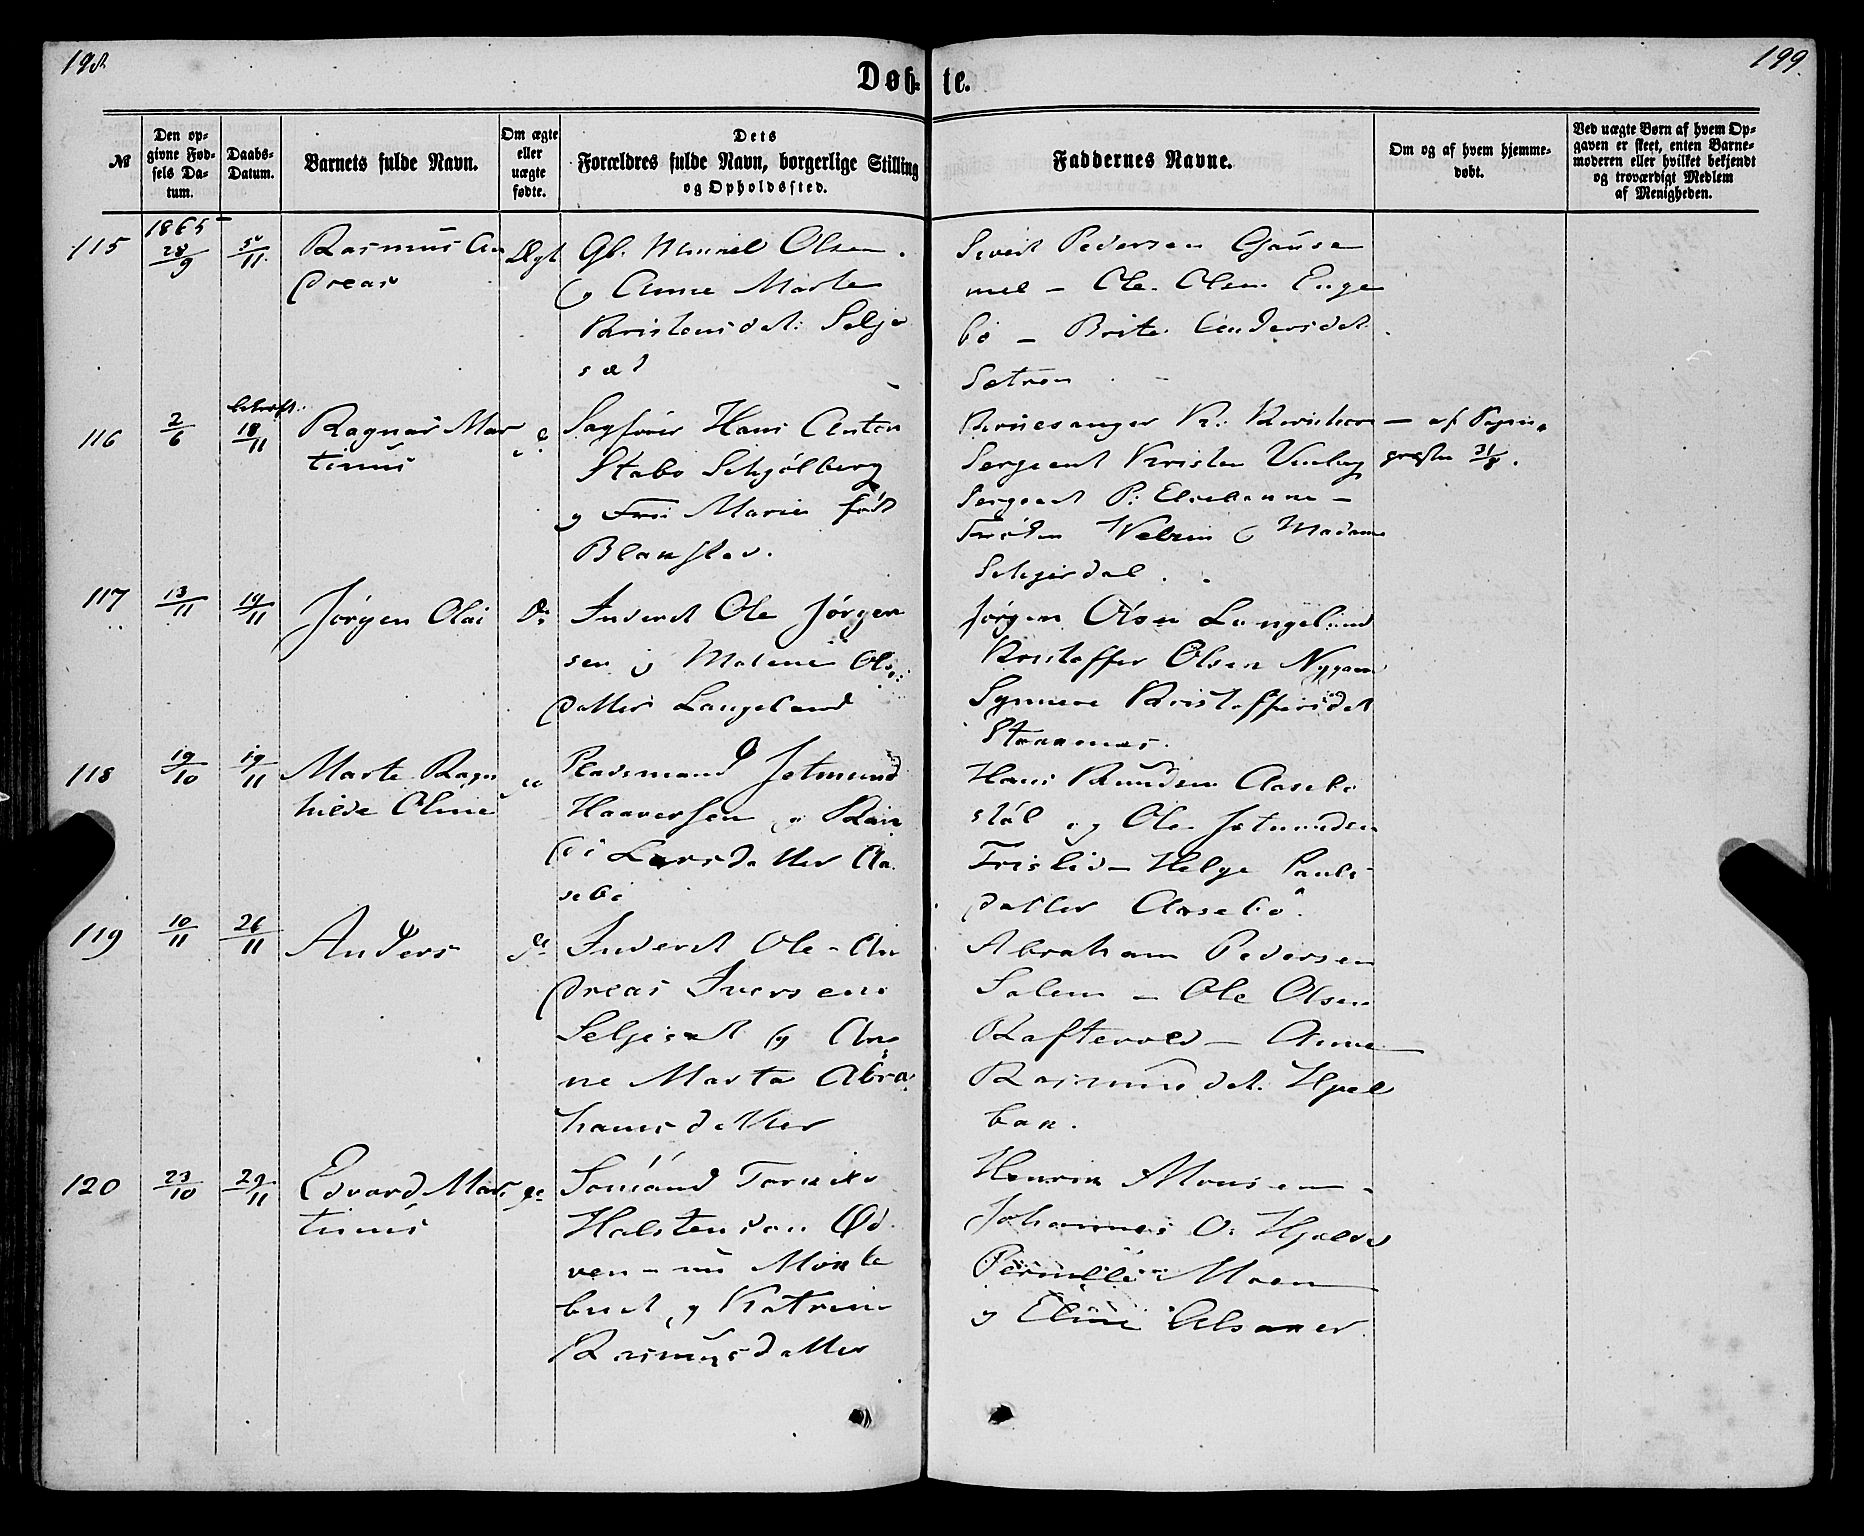 198.
199.
Døb-
te.
№
Den op-
givne Fød-
sels Da-
tum.
Daabs-
Datum.
Barnets fulde Navn.
Om ægte
eller
uægte
fødte.
Dets
Forældres fulde Navn, borgerlige Stilling
og Opholdssted.
Faddernes Navne.
Om og af hvem hjemme-
døbt.
Ved uægte Børn af hvem Op-
gaven er skeet, enten Barne-
moderen eller hvilket bekjendt
og troværdigt Medlem
af Menigheden.
1865
115 28/9 5/11 Rasmus An
dreas
Ægt
Gb. Olsen
og Anne Marte
Kristensdat: Selje
sæt
Sivert Pedersen
mel - Ole Olsen Enge
bø - Brite Andersdat.
Sætren
116 2/6 18/11 Ragnar Mar
tinus
Sagfører Hans Anton
Stabo Schjölberg
og Fru Marie født
Kirkesanger K.
Sergeant Kristen
Sergeant P:
Frøken og Madam
Schjerdal.
- af Sogne
præsten
117 13/11 19/11 Jørgen Olai
Do
Inderst Ole Jørgen
sen og Malene Ols
datter Langeland
Jørgen Olsen Langeland
Kristoffer Olsen Nygaard
Synneve Kristoffersdat
118 19/10 19/11 Marte Ragn
hilde Oline
do
Pladsmand Jetmund
Haaversen og Ran
di Larsdatter Aa
sebø
Hans Knudsen Aasebø
støl og Ole Jetmundsen
Helge Pauls
datter Aasebø.
119 10/11 26/11 Anders
do
Inderst Ole An
dreas Iversen
Seljesæt og An
ne Marta Abra
hamsdatter
Abraham Pedersen
Salem - Ole Olsen
Raftevold - Anne
Rasmusdat. Hjel
120 23/10 29/11 Edvard Mar
tinus
do
Sømand
Halstensen Ød
ven - nu
og Katrine
Rasmusdatter
Henrik Monsen
Johannes O. Hjelle
Pernille Moen
og Eline